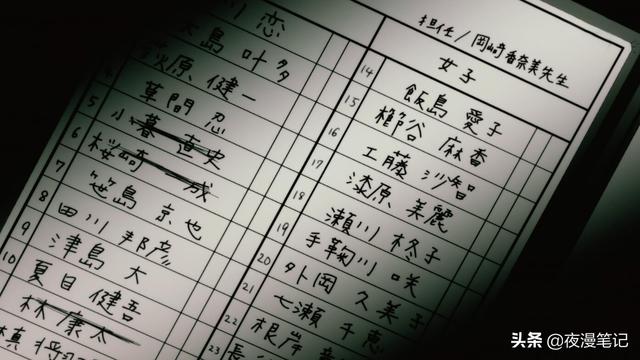 担任/岡崎香奈美先生
女子
川 恋
大島 叶多
荻原 健一
草間 忍
5 小暮 直史
6 桜崎 一成
7 笹島 京也
8 田川 邦彦
9 津島 大
10 夏目 健吾
林 康太
槙 将
14 飯島 愛子
15 櫛谷 麻香
16 工藤 沙智
17 漆原 美麗
18 瀬川 柊子
19 手鞠川 咲
20 外岡 久美子
21 七瀬 千恵
22 根岸
23 長
头条 @夜漫笔记